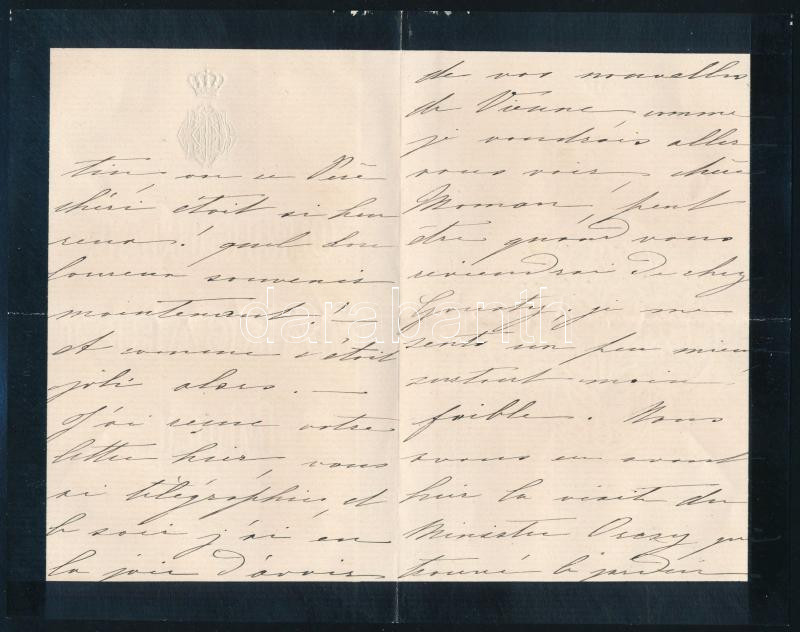 tin où ce Père
chéri étoit si heu
reux! quel dou
loureux souvenir
maintenant!
Et comme c'étoit
joli alors. —
J'ai reçue votre
lettre hier, vous
ai télégraphiée, et
le soir j'ai eu
la joie d'avoir
de vos nouvelles
de Vienne comme
je voudrois aller
vous voir, chère
Maman, peut
être quand vous
reviendrai de chez
je me
sents un peu mieux
surtout moins
faible. Nous
avons eu avant
hier la visite du
Ministre Orczy, qui
trouvé le jardin
darabanth